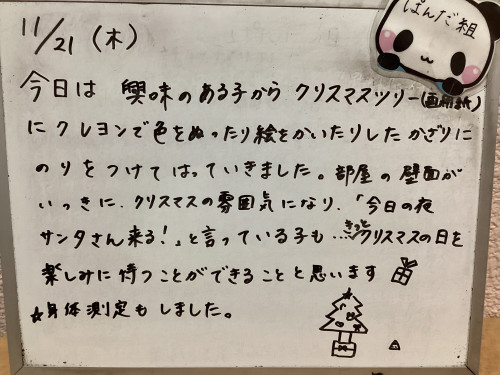 ぱんだ組
11/21 (木)
今日は 興味のある子から クリスマスツリー(画用紙)
に クレヨンで色をぬったり絵をかいたりした かざりに
のりをつけて はっていきました。部屋の壁面が
いっきに、クリスマスの雰囲気になり、「今日の夜
サンタさん来る!」と言っている子も…きっとクリスマスの日を
楽しみに待つことができることと思います
☆身体測定もしました。